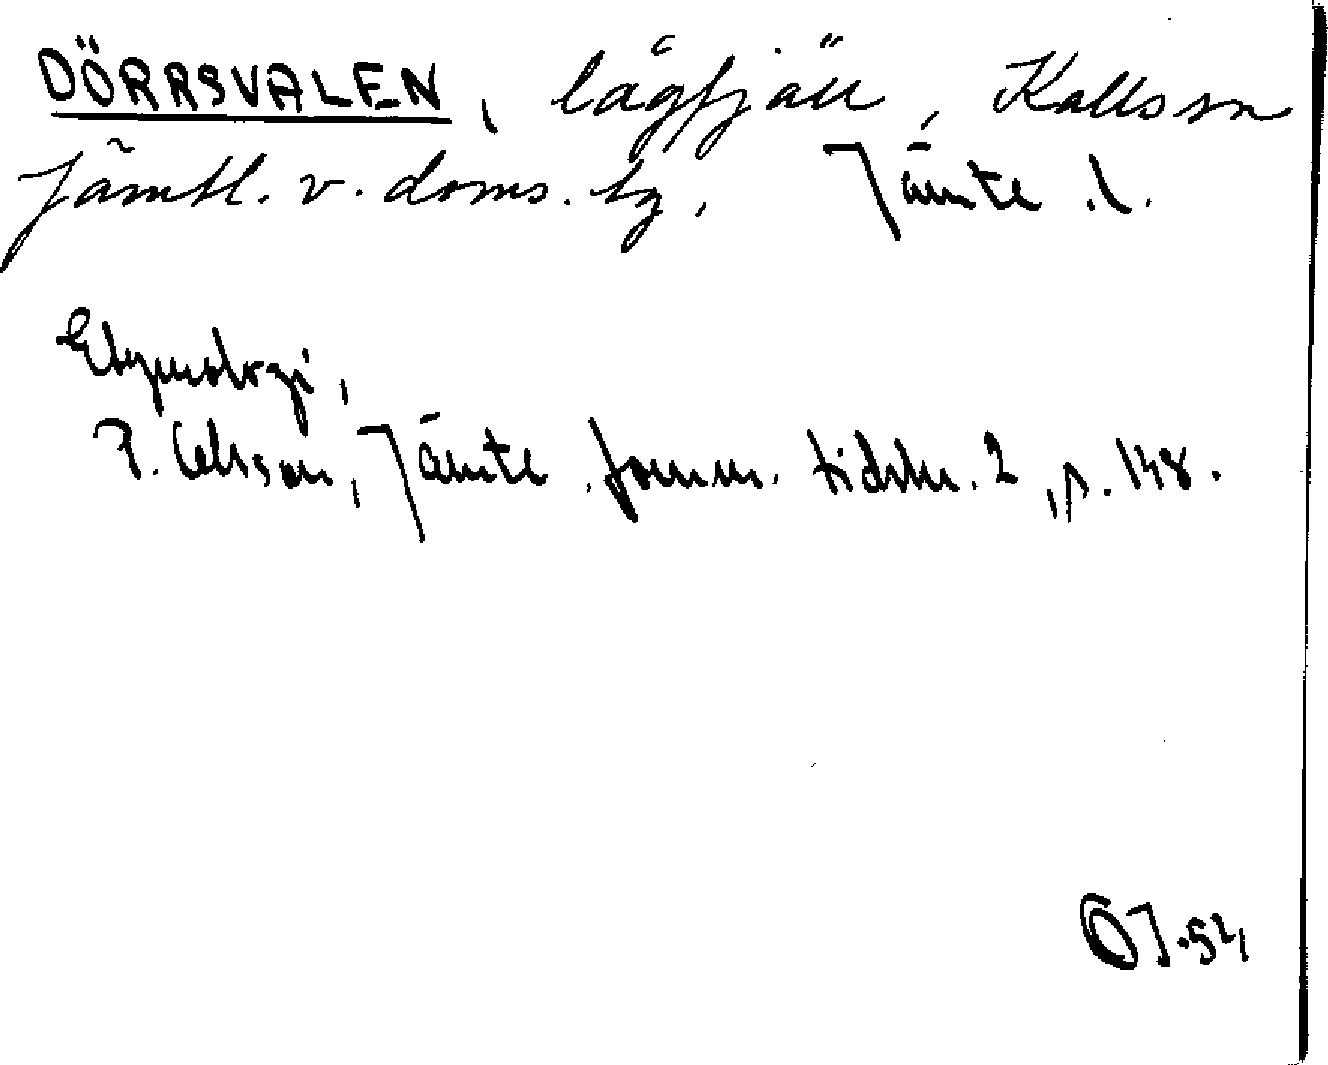 DÖRRSVALEN, lågfjäll, Kallssn
Jämtl. v. doms. tg, Jämtl. l.
Etymologi,
P. Olsson, Jämtl. fornm. tidskr. 2, s. 148.
OJ.54